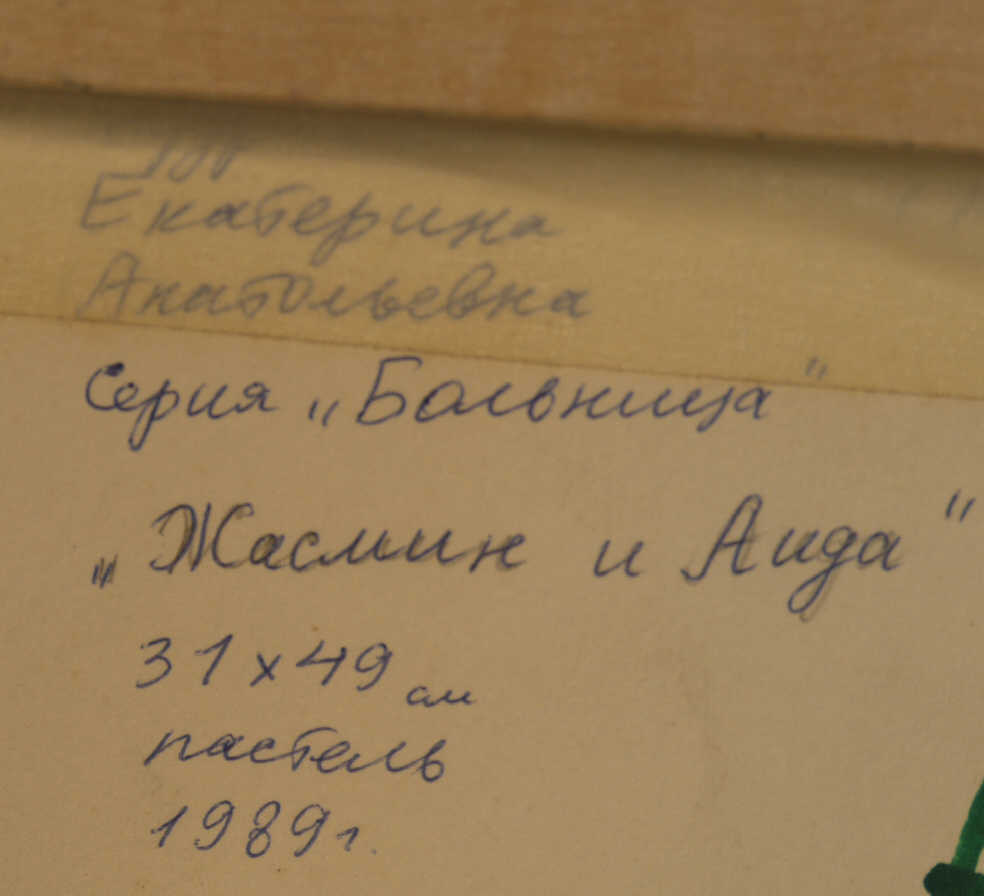 Екатерина
Анатольевна
Серия „Больница"
„Жасмин и Аида"
31 x 49 см
пастель
1989 г.